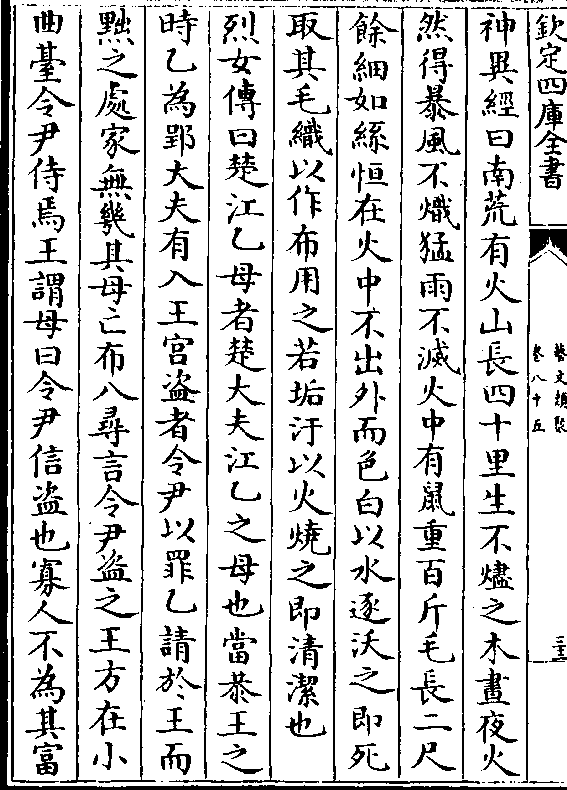 欽定四庫全書
藝文類聚
卷八十五
三十三
神異經曰南荒有火山長四十里生不燼之木晝夜火
然得暴風不熾猛雨不滅火中有鼠重百斤毛長二尺
餘細如絲恒在火中不出外而色白以水逐沃之即死
取其毛織以作布用之若垢汙以火燒之即清潔也
烈女傳曰楚江乙母者楚大夫江乙之母也當恭王之
時乙為郢大夫有入王宮盜者令尹以罪乙請於王而
黜之處家無幾其母亡布八尋言令尹盜之王方在小
曲臺令尹侍焉王謂母曰令尹信盜也寡人不為其富